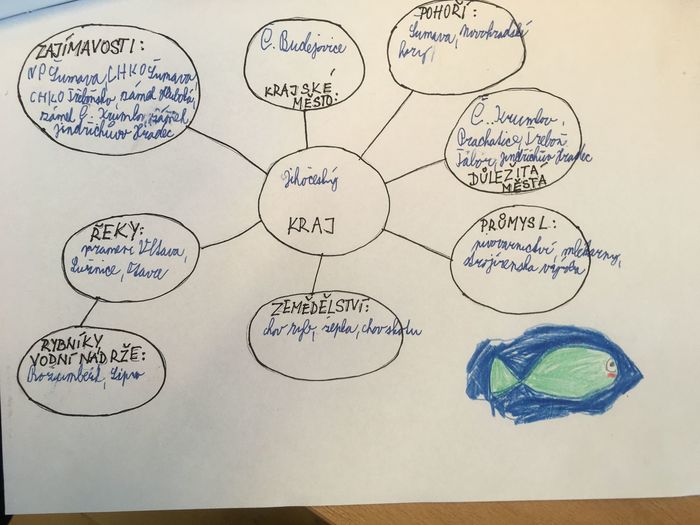 ZAJÍMAVOSTI:
NP Šumava, CHKO Šumava
CHKO Třeboňsko, zámek Hluboká,
zámek Č. Krumlov, zámek
Jindřichův Hradec
Č. Budějovice
KRAJSKÉ
MĚSTO:
POHOŘÍ:
Šumava, Novohradské
hory
Č. Krumlov,
Prachatice, Třeboň
Tábor, Jindřichův Hradec
DŮLEŽITÁ
MĚSTA
Jihočeský
KRAJ
ŘEKY:
pramení Vltava,
Lužnice, Otava
PRŮMYSL:
pivovarnictví, mlékárny,
strojírenská výroba
ZEMĚDĚLSTVÍ:
chov ryb, řepka, chov skotu
RYBNÍKY
VODNÍ NÁDRŽE:
Rožumberk, Lipno